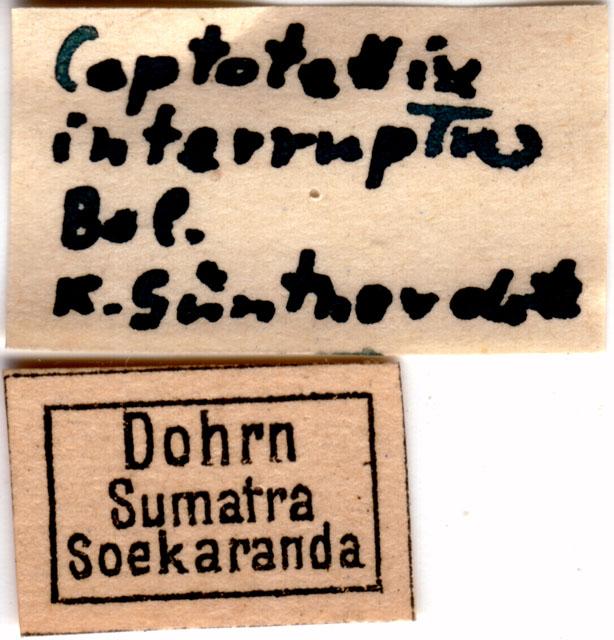 Coptotettix
interruptus
Bol.
K. Günther det.
Dohrn
Sumatra
Soekaranda